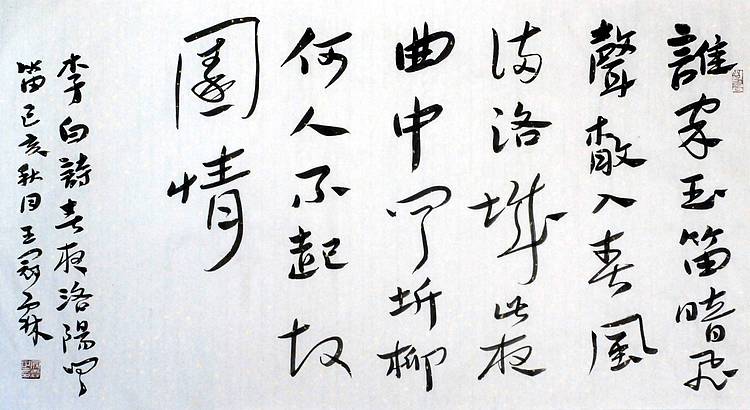 誰家玉笛暗飛
聲散入春風
滿洛城此夜
曲中聞折柳
何人不起故
園情
李白詩春夜洛陽聞
笛己亥秋月王冢霖